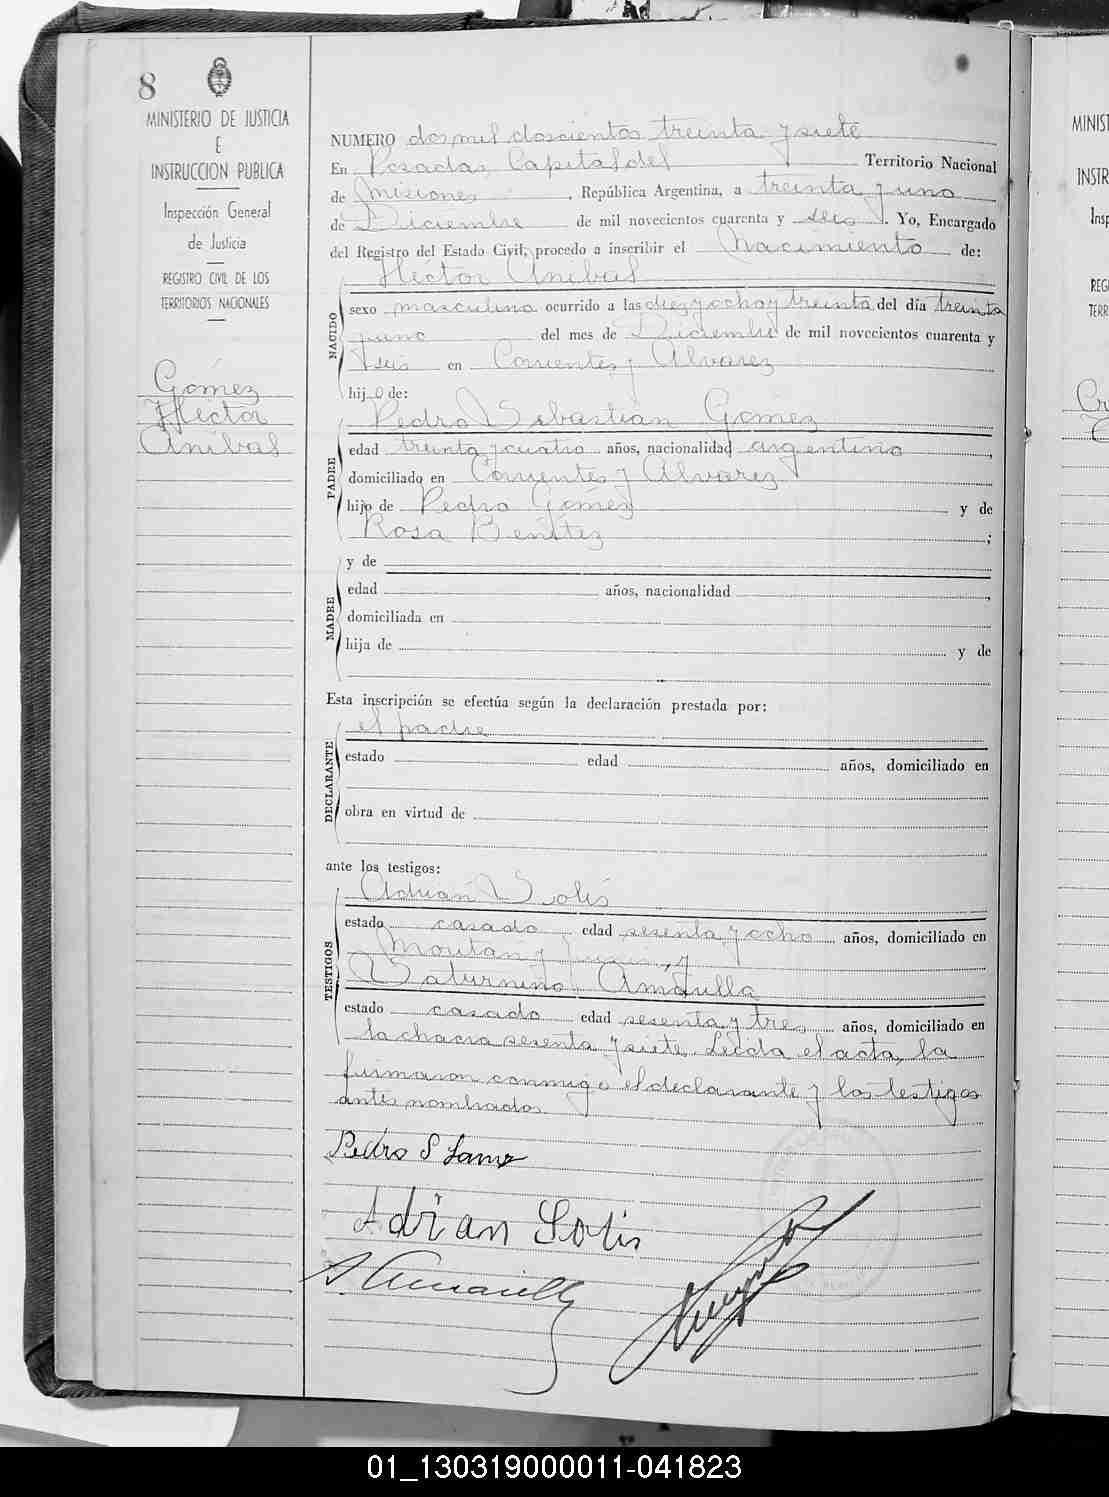 8
MINISTERIO DE JUSTICIA
E
INSTRUCCION PUBLICA
Inspección General
de Justicia
REGISTRO CIVIL DE LOS
TERRITORIOS NACIONALES
Gómez
Hector
Anibal
NUMERO dos mil doscientos treinta y siete
En Posadas, Capital del Territorio Nacional
de Misiones, República Argentina, a treinta y uno
de Diciembre de mil novecientos cuarenta y seis. Yo, Encargado
del Registro del Estado Civil, procedo a inscribir el Nacimiento de:
Hector Anibal
NACIDO
sexo masculino ocurrido a las diez y ocho y treinta del día treinta
y uno del mes de Diciembre de mil novecientos cuarenta y
seis en Corrientes y Alvarez
hijo de:
Pedro Sebastián Gómez
PADRE
edad treinta y cuatro años, nacionalidad argentino,
domiciliado en Corrientes y Alvarez
hijo de Pedro Gómez y de
Rosa Benítez;
y de
MADRE
edad años, nacionalidad,
domiciliada en
hija de y de
Esta inscripción se efectúa según la declaración prestada por:
el padre
DECLARANTE
estado edad años, domiciliado en
obra en virtud de
ante los testigos:
Adrián Solis
TESTIGOS
estado casado edad sesenta y ocho años, domiciliado en
y Junin, y
Saturnino Amarilla
estado casado edad sesenta y tres años, domiciliado en
la chacra sesenta y siete. Leida el acta, la
firmaron conmigo el declarante y los testigos
antes nombrados.
Pedro S Gomez
Adrian Solis
S. Amarilla
MINIST
INSTR
Insp
REG
TERR
01_130319000011-041823